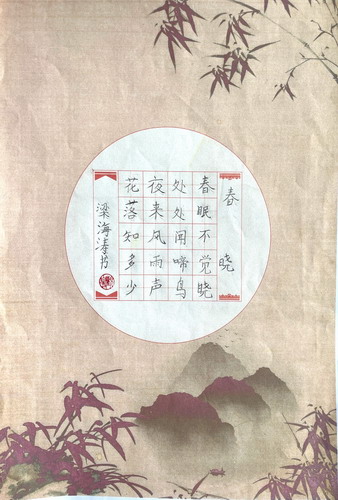 春晓
春眠不觉晓
处处闻啼鸟
夜来风雨声
花落知多少
梁海涛书